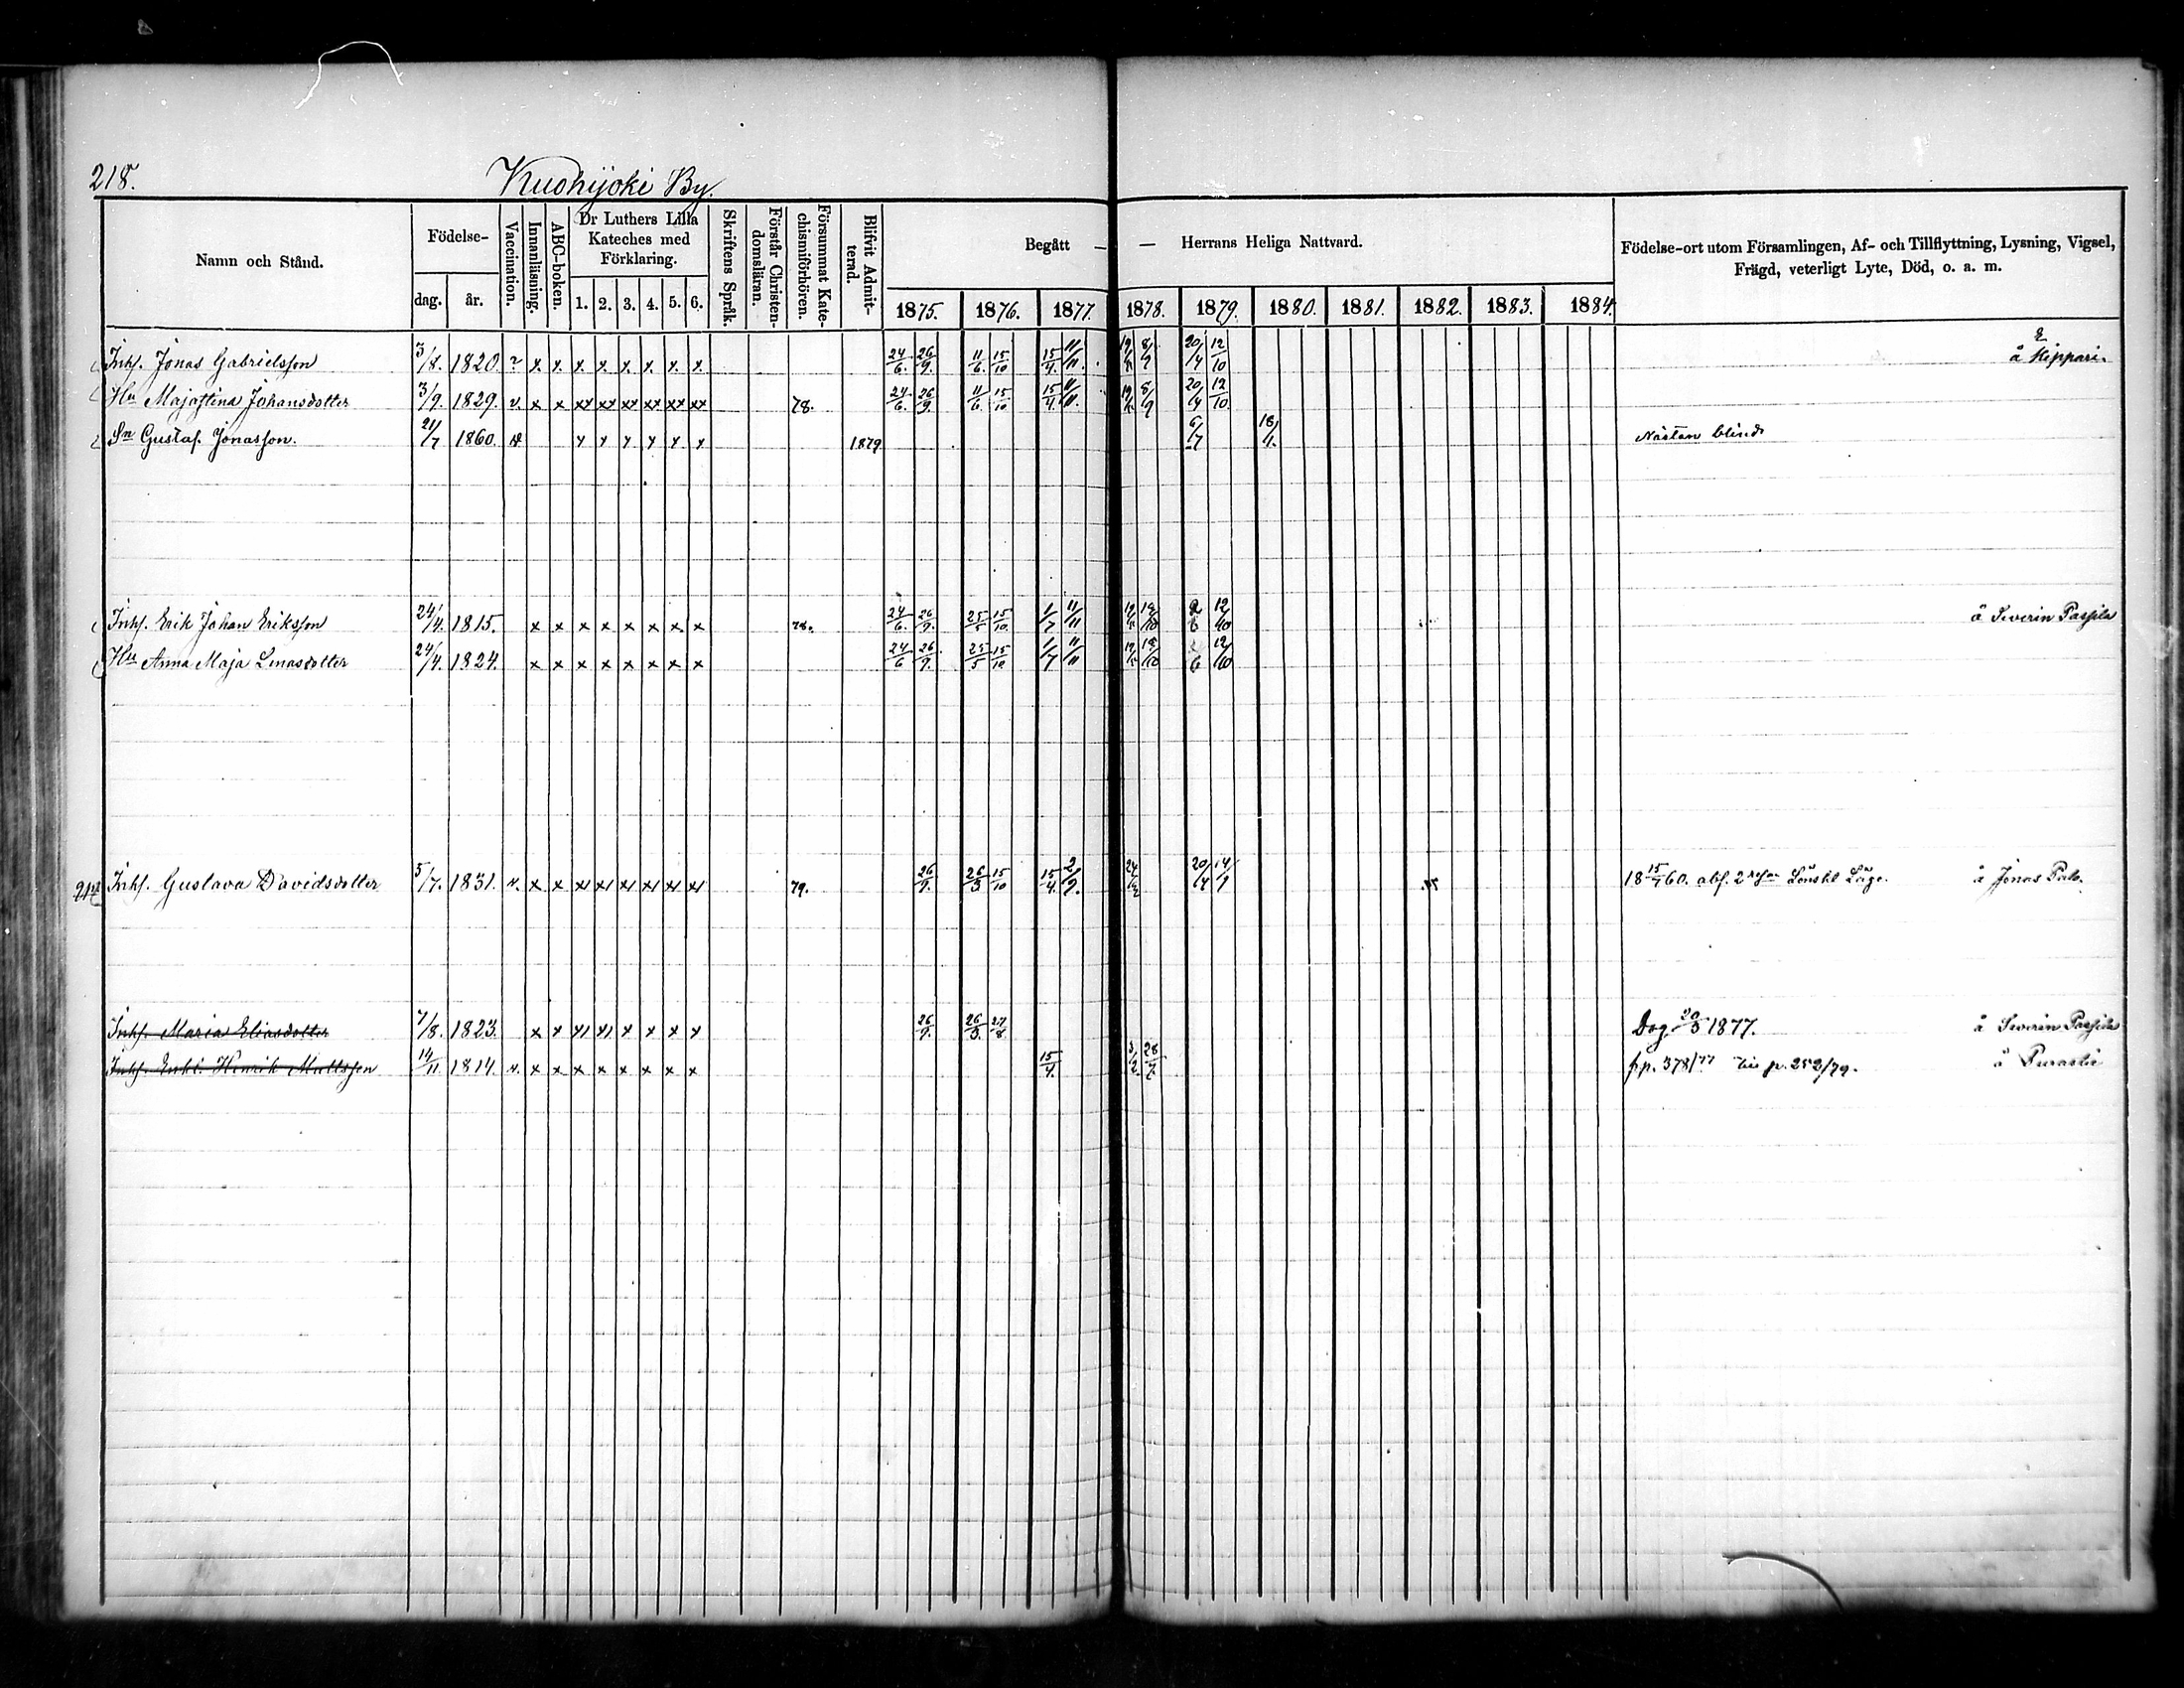 218.
Kuohijoki By.
Namn och Stånd.
Födelse-
dag.
år.
Vaccination.
Innanläsning.
ABC-boken.
Dr Luthers Lilla Kateches med Förklaring.
1. 2. 3. 4. 5. 6.
Skriftens Språk.
Förstår Christendomsläran.
Försummat Katechismiförhören.
Blifvit Admitterad.
Begått — — Herrans Heliga Nattvard.
1875. 1876. 1877. 1878. 1879. 1880. 1881. 1882. 1883. 1884.
Födelse-ort utom Församlingen, Af- och Tillflyttning, Lysning, Vigsel,
Frägd, veterligt Lyte, Död, o. a. m.
Inhs. Jonas Gabrielsson 3/8. 1820. ? x x x x x x x x 24/6. 26/9. 11/6. 15/10 15/4. 11/11. 20/4 12/10 å Kippari.
Hu Majastina Johansdotter 3/9. 1829. v. x x xx xx xx xx xx xx 78. 24/6. 26/9. 11/6. 15/10 15/4. 11/11. 20/4 12/10.
Sn Gustaf Jonasson. 21/7 1860. v x x x x x x 1879 6/7 18/4. Nästan blind
Inhs. Erik Johan Eriksson 24/4. 1815. x x x x x x x x 78. 24/6. 26/9. 25/5 15/10. 1/7 11/11 12/10 å Severin Passila
Hu Anna Maja Linasdotter 24/4. 1824. x x x x x x x x 24/6 26/9. 25/5 15/10 1/7 11/11 12/10
Inhs. Gustava Davidsdotter 5/7. 1831. v. x x x x x x x x 79. 26/9. 26/3 15/10 15/4. 2/9. 20/4 14/9 18 15/1 60. abs. 2 Lönskl Läge. å Jonas Palo.
Inhs. Maria Eliasdotter 7/8. 1823. x x x x x x x x 26/9. 26/3. 27/8 Dog 20/3 1877. å Severin Passila
Inhs. Enkl. Henrik Mattsson 14/11 1814. v. x x x x x x x x 15/4. 3/2. 28/7. fr p. 378/77 till p. 252/79. å